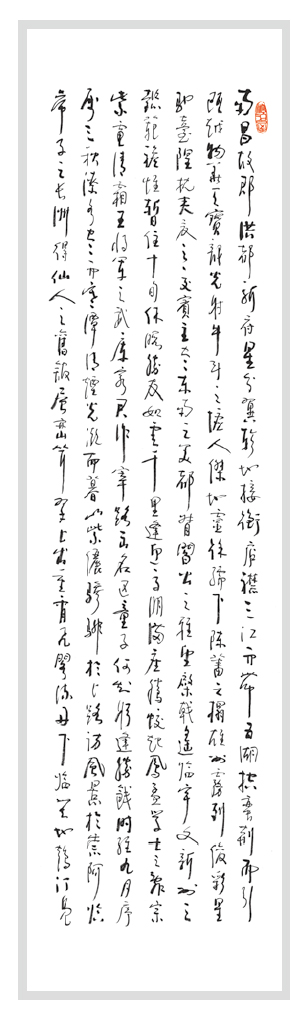 南昌故郡洪都新府星分翼軫地接衡廬襟三江而帶五湖控蠻荊而引
甌越物華天寶龍光射牛斗之墟人傑地靈徐孺下陳蕃之榻雄州霧列俊彩星
馳臺隍枕夷夏之交賓主盡東南之美都督閻公之雅望棨戟遙臨宇文新州之
懿範襜帷暫住十旬休暇勝友如雲千里逢迎高朋滿座騰蛟起鳳孟學士之詞宗
紫電清霜王將軍之武庫家君作宰路出名區童子何知躬逢勝餞時維九月序
屬三秋潦水盡而寒潭清煙光凝而暮山紫儼驂騑於上路訪風景於崇阿臨
帝子之長洲得仙人之舊館層巒聳翠上出重霄飛閣流丹下臨無地鶴汀鳧